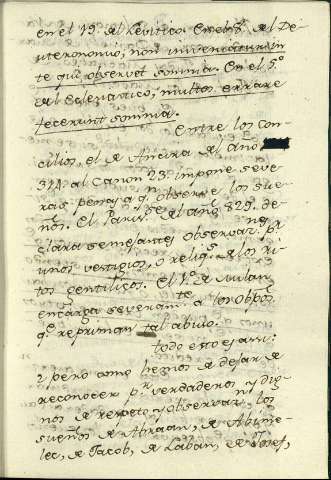 en el 19. del Levitico. En el 18. del De-
uteronomio, non inveniatur in
te qui observet somnia. En el 5º
del Eclesiastico, multos errare
fecerunt somnia.
Entre los con-
cilios, el de Ancira del año
314. al Canon 23. impone seve-
ras penas a qn. observe los sue-
ños. El Paris.e del año 829. de-
clara semejantes observan.nes pr
unos vestigios, o reliq.s de los ri-
tos gentilicos. El 1º de Milan
encarga severam.te a los obpos.
q.e repriman tal abuso.
Todo esto es assi:
y pero como hemos de dejar de
reconocer p.r verdaderos y dig-
nos de respeto, y observar.n los
sueños de Abraan, de Abime-
lec, de Jacob, de Laban, de Josef,